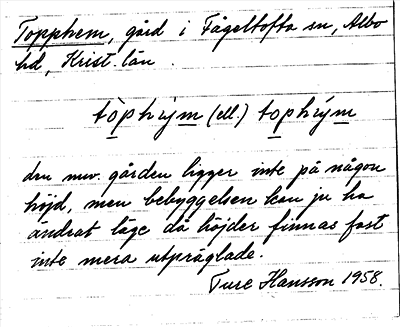 Topphem, gård i Fågeltofta sn, Albo
hd, Krist. län.
tòphèym (ell.) tophéym
den nuv. gården ligger inte på någon
höjd, men bebyggelsen kan ju ha
ändrat läge då höjder finnas fast
inte mera utpräglade.
Ture Hansson 1958.